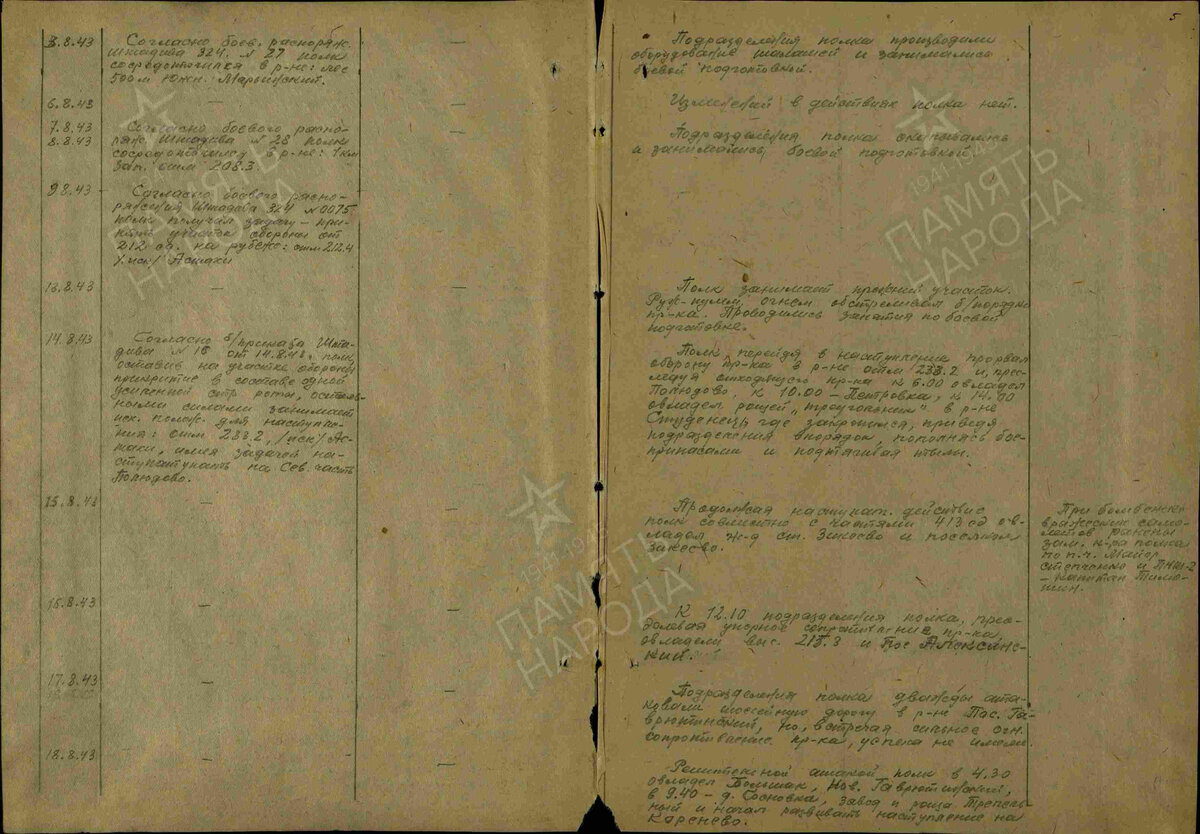 5
3.8.43
Согласно боев. распоряж.
Штадива 324 № 27 полк
сосредоточился в р-не: лес
500 м южн. Марьинский.
—
Подразделения полка производили
оборудование шалашей и занимались
боевой подготовкой.
6.8.43
—
—
Изменений в действиях полка нет.
7.8.43
8.8.43
Согласно боевого распо-
ряж. Штадива № 28 полк
сосредоточился в р-не: 1 км
зап. отм. 208.3.
—
Подразделения полка окапывались
и занимались боевой подготовкой.
9.8.43
Согласно боевого распо-
ряжения Штадива 324 № 0075
полк получил задачу – при-
нять участок обороны от
212 сп. на рубеже: отм 212.4
/иск/ Асмаки
—
13.8.43
—
—
Полк занимает прежний участок.
Руж-пулем. огнем обстреливал б/порядки
пр-ка. Проводились занятия по боевой
подготовке.
14.8.43
Согласно б/приказа Шта-
дива № 15 от 14.8.43. полк,
оставив на участке обороны
прикрытие в составе одной
усиленной стр роты, осталь-
ными силами занимает
исх. полож. для наступле-
ния: отм. 233.2, /иск/ Ас-
маки, имея задачей на-
ступатупать на Сев. часть
Полюдово.
—
Полк, перейдя в наступление прорвал
оборону пр-ка в р-не отм 233.2 и, прес-
ледуя отходящего пр-ка к 6.00 овладел
Полюдово, к 10.00 – Петровка, к 14.00
овладел рощей „треугольник" в р-не
Студенец, где закрепился, приведя
подразделения в порядок, пополнясь бое-
припасами и подтягивая тылы.
15.8.43
—
—
Продолжая наступат. действие
полк совместно с частями 413 сд ов-
ладел ж-д ст. Зикеево и поселком
Зикеево.
При бомбежке
вражеских само-
летов ранены
зам. к-ра полка
по п.ч. Майор
Степченко и ПНШ-2
– капитан Тимо-
шин.
16.8.43
—
—
К 12.10 подразделения полка, прео-
долевая упорное сопротивление пр-ка,
овладели выс. 215.3 и пос Алексинс-
кий.
17.8.43
—
—
Подразделения полка дважды ата-
ковали шоссейную дорогу в р-не Пос. Га-
врютинский, но, встречая сильное огн.
сопротивление пр-ка, успеха не имели.
18.8.43
—
—
Решительной атакой полк в 4.30
овладел Большак, Нов. Гаврютинский,
в 9.40 – д. Сосновка, Завод и роща Трепель-
ный и начал развивать наступление на
Каренево.
1941-1945
ПАМЯТЬ
НАРОДА
1941-1945
ПАМЯТЬ
НАРОДА
ПАМЯТЬ
НАРОДА